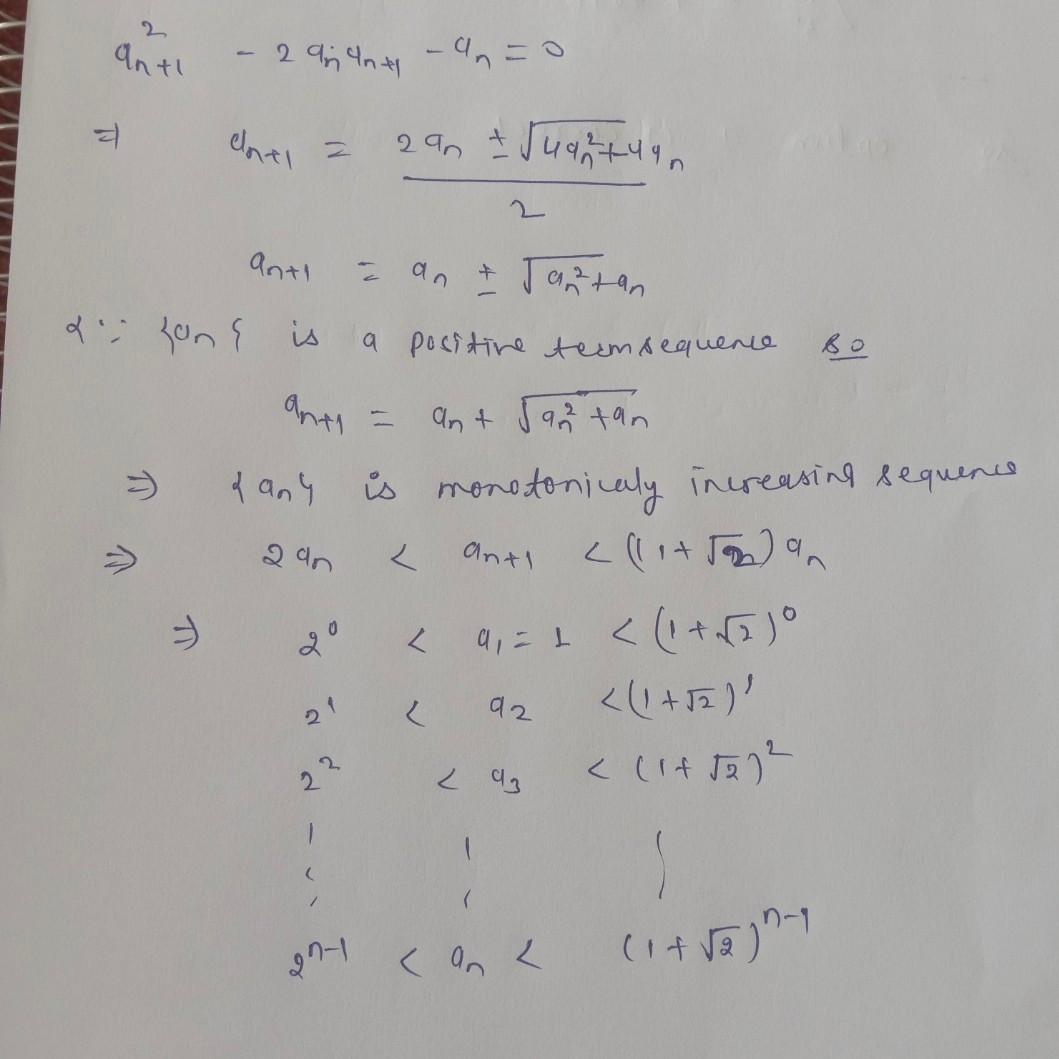 a²ₙ₊₁ - 2 aₙ aₙ₊₁ - aₙ = 0
⇒ aₙ₊₁ = (2aₙ ± √(4aₙ² + 4aₙ)) / 2
aₙ₊₁ = aₙ ± √(aₙ² + aₙ)
& ∵ {aₙ} is a positive term sequence so
aₙ₊₁ = aₙ + √(aₙ² + aₙ)
⇒ {aₙ} is monotonicaly increasing sequence
⇒ 2aₙ < aₙ₊₁ < (1 + √2) aₙ
⇒ 2⁰ < a₁ = 1 < (1 + √2)⁰
2¹ < a₂ < (1 + √2)¹
2² < a₃ < (1 + √2)²
2ⁿ⁻¹ < aₙ < (1 + √2)ⁿ⁻¹